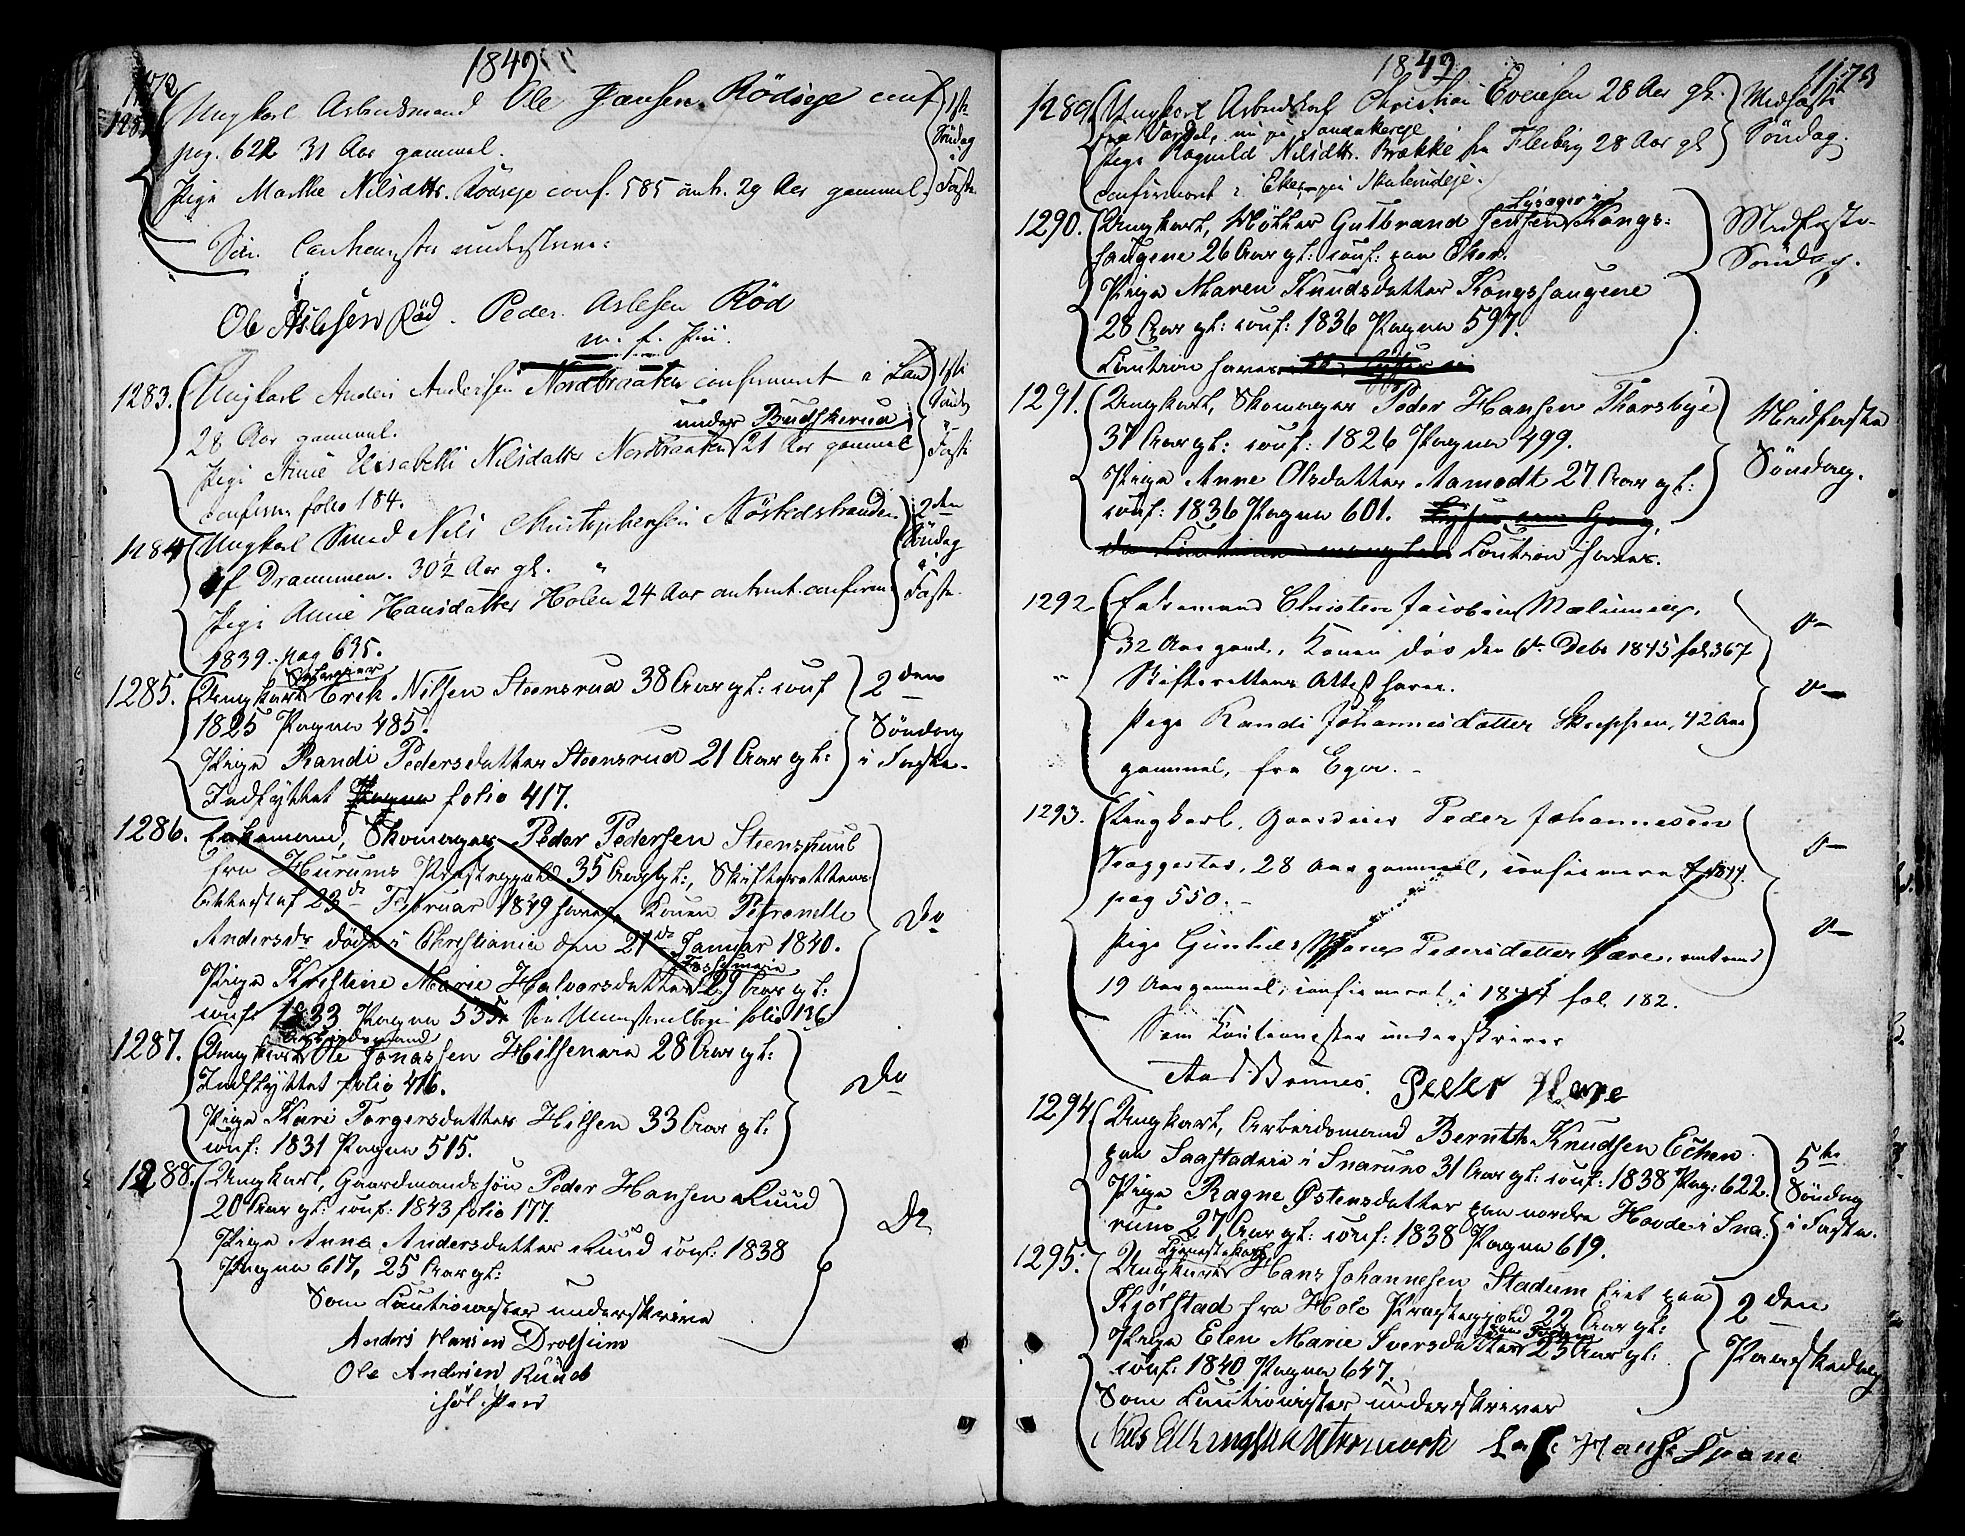 1849
Ungkarl Arbeidsmand Ole Jansen Rødseje conf
pag. 622 31 Aar gammel.
Pige Marthe Nilsdttr. Rødseje conf. 585 omtr. 29 Aar gammel.
1ste
Søndag
i
Faste
Som Cautionister underskrive:
Ole Aslesen Rød. Peder Aslesen Rød
m. f. Pen.
1283. Ungkarl Anders Andersen Nordbraaten confirmeret i Land
28 Aar gammel.
under Buskerud
Pige Anne Elisabeth Nilsdatter Nordbraaten 21 Aar gammel
confirm. folio 184.
1ste
Søndag
i
Faste
1284 Ungkarl Smed Nils Christophersen Nøstedstranden
af Drammen. 30½ Aar gl.
Pige Anne Hansdatter Holen 24 Aar omtrent. confirm.
1839. pag 635.
2den
Søndag
i
Faste.
1285. Ungkarl Erik Nilsen Steensrud 38 Aar gl: conf
1825 Pagina 485.
Pige Randi Pedersdatter Steensrud 21 Aar gl:
Indflyttet Pagina folio 417.
2den
Søndag
i Faste.
1286. Enkemand, Skomager Peder Pedersen Steenshuul
fra Hurums Præstegjeld 35 Aar gl:, Skifterettens
Attest af 23de Februar 1849 haves. Konen Petronelle
Andersdr døde i Christiania den 21de Januar 1840.
Pige Kirstine Marie Halvorsdatter 29 Aar gl:
conf 1833 Pagina 535. folio 126
Do
1287. Arbeidsmand
Ungkarl Ole Jonassen Hilseneie 28 Aar gl:
Indflyttet folio 416.
Pige Kari Torgersdatter Hilsen 33 Aar gl:
conf: 1831 Pagina 515.
Do
1288. Ungkarl, Gaardmandssøn Peder Hansen Ruud
20 Aar gl: conf: 1843 folio 177.
Pige Anne Andersdatter Ruud conf: 1838
Pagina 617, 25 Aar gl:
Do
Som Cautionister underskrive
Anders Hansen Drolsum
Ole Andersen Ruud
1849
1173
1289 Ungkarl Christian Evensen 28 Aar gl.
Pige Ragnild Nilsdttr. Brække fra Flesberg 28 Aar gl
confirmeret i Eker
Midfaste
Søndag.
1290. Ungkarl, Møller Gulbrand Jensen Kongs=
haugene 26 Aar gl: conf: paa Eker.
Pige Maren Knudsdatter Kongshaugene
28 Aar gl: conf: 1836 Pagina 597.
Caution haves
Midfaste
Søndag.
1291. Ungkarl, Skomager Peder Hansen Thorsbye
37 Aar gl: conf: 1826 Pagina 499.
Pige Anne Olsdatter Aamodt 27 Aar gl:
conf: 1836 Pagina 601.
Caution haves.
Midfaste
Søndag.
1292. Enkemand Christen Jacobsen
32 Aar gaml., Konen døde den 6te Debr 1845 fol 367
Skifterettens Attest haves.
Pige Randi Johannesdatter Skuppen, 42 Aar
gammel, fra Eger.
1293. Ungkarl, Gaardeier Peder Johannesen
28 Aar gammel, confirmeret 1844.
pag 550.
Pige Gunhild Marie Pedersdatter Hære, omtrent
19 Aar gammel, confirmeret i 1844 fol. 182.
Som Cautionister underskriver
Peder Hære
1294. Ungkarl, Arbeidsmand Bernth Knudsen Echen
paa Saastadeie i Snarum 31 Aar gl: conf: 1838 Pag: 622.
Pige Ragne Østensdatter paa nordre Hovde i Sna=
rum 27 Aar gl: conf: 1838 Pagina 619.
5te
Søndag
i Faste.
1295. Tjenestekarl
Ungkarl Hans Johannesen Stadum tient paa
Kjølstad fra Hole Præstegjeld 22 Aar gl:
Pige Elen Marie Iversdatter 25 Aar gl:
conf: 1840 Pagina 647.
2den
Paaskedag
Som Cautionister underskriver